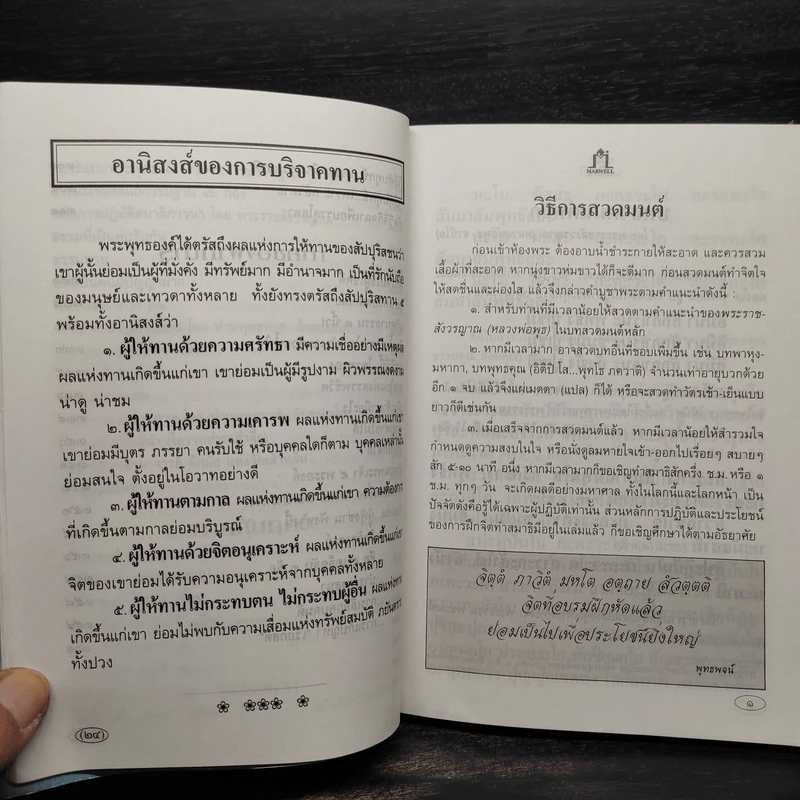 อานิสงส์ของการบริจาคทาน
พระพุทธองค์ได้ตรัสถึงผลแห่งการให้ทานของสัปปุริสชนว่า
เขาผู้นั้นย่อมเป็นผู้ที่มั่งคั่ง มีทรัพย์มาก มีอำนาจมาก เป็นที่รักนับถือ
ของมนุษย์และเทวดาทั้งหลาย ทั้งยังทรงตรัสถึงสัปปุริสทาน ๕
พร้อมทั้งอานิสงส์ว่า
๑. ผู้ให้ทานด้วยความศรัทธา มีความเชื่ออย่างมีเหตุผล
ผลแห่งทานเกิดขึ้นแก่เขา เขาย่อมเป็นผู้มีรูปงาม ผิวพรรณงดงาม
น่าดู น่าชม
๒. ผู้ให้ทานด้วยความเคารพ ผลแห่งทานเกิดขึ้นแก่เขา
เขาย่อมมีบุตร ภรรยา คนรับใช้ หรือบุคคลใดก็ตาม บุคคลเหล่านั้น
ย่อมสนใจ ตั้งอยู่ในโอวาทอย่างดี
๓. ผู้ให้ทานตามกาล ผลแห่งทานเกิดขึ้นแก่เขา ความต้องการ
ที่เกิดขึ้นตามกาลย่อมบริบูรณ์
๔. ผู้ให้ทานด้วยจิตอนุเคราะห์ ผลแห่งทานเกิดขึ้นแก่เขา
จิตของเขาย่อมได้รับความอนุเคราะห์จากบุคคลทั้งหลาย
๕. ผู้ให้ทานไม่กระทบตน ไม่กระทบผู้อื่น ผลแห่งทาน
เกิดขึ้นแก่เขา ย่อมไม่พบกับความเสื่อมแห่งทรัพย์สมบัติ ภยันตราย
ทั้งปวง
(๒๔)
MAXWELL
วิธีการสวดมนต์
ก่อนเข้าห้องพระ ต้องอาบน้ำชำระกายให้สะอาด และควรสวม
เสื้อผ้าที่สะอาด หากนุ่งขาวห่มขาวได้ก็จะดีมาก ก่อนสวดมนต์ทำจิตใจ
ให้สดชื่นและผ่องใส แล้วจึงกล่าวคำบูชาพระตามคำแนะนำดังนี้ :
๑. สำหรับท่านที่มีเวลาน้อยให้สวดตามคำแนะนำของพระราช-
สังวรญาณ (หลวงพ่อพุธ) ในบทสวดมนต์หลัก
๒. หากมีเวลามาก อาจสวดบทอื่นที่ชอบเพิ่มขึ้น เช่น บทพาหุง-
มหากา, บทพุทธคุณ (อิติปิ โส...พุทโธ ภควาติ) จำนวนเท่าอายุบวกด้วย
อีก ๑ จบ แล้วจึงแผ่เมตตา (แปล) ก็ได้ หรือจะสวดทำวัตรเช้า-เย็นแบบ
ยาวก็ดีเช่นกัน
๓. เมื่อเสร็จจากการสวดมนต์แล้ว หากมีเวลาน้อยให้สำรวมใจ
กำหนดดูความสงบในใจ หรือนั่งดูลมหายใจเข้า-ออกไปเรื่อยๆ สบายๆ
สัก ๕-๑๐ นาที อนึ่ง หากมีเวลามากก็ขอเชิญทำสมาธิสักครึ่ง ช.ม. หรือ ๑
ช.ม. ทุกๆ วัน จะเกิดผลดีอย่างมหาศาล ทั้งในโลกนี้และโลกหน้า เป็น
ปัจจัตตังคือรู้ได้เฉพาะผู้ปฏิบัติเท่านั้น ส่วนหลักการปฏิบัติและประโยชน์
ของการฝึกจิตทำสมาธิมีอยู่ในเล่มแล้ว ก็ขอเชิญศึกษาได้ตามอัธยาศัย
จิตฺตํ ภาวิตํ มหโต อตฺถาย สํวตฺตติ
จิตที่อบรมฝึกหัดแล้ว
ย่อมเป็นไปเพื่อประโยชน์ยิ่งใหญ่
พุทธพจน์
๑